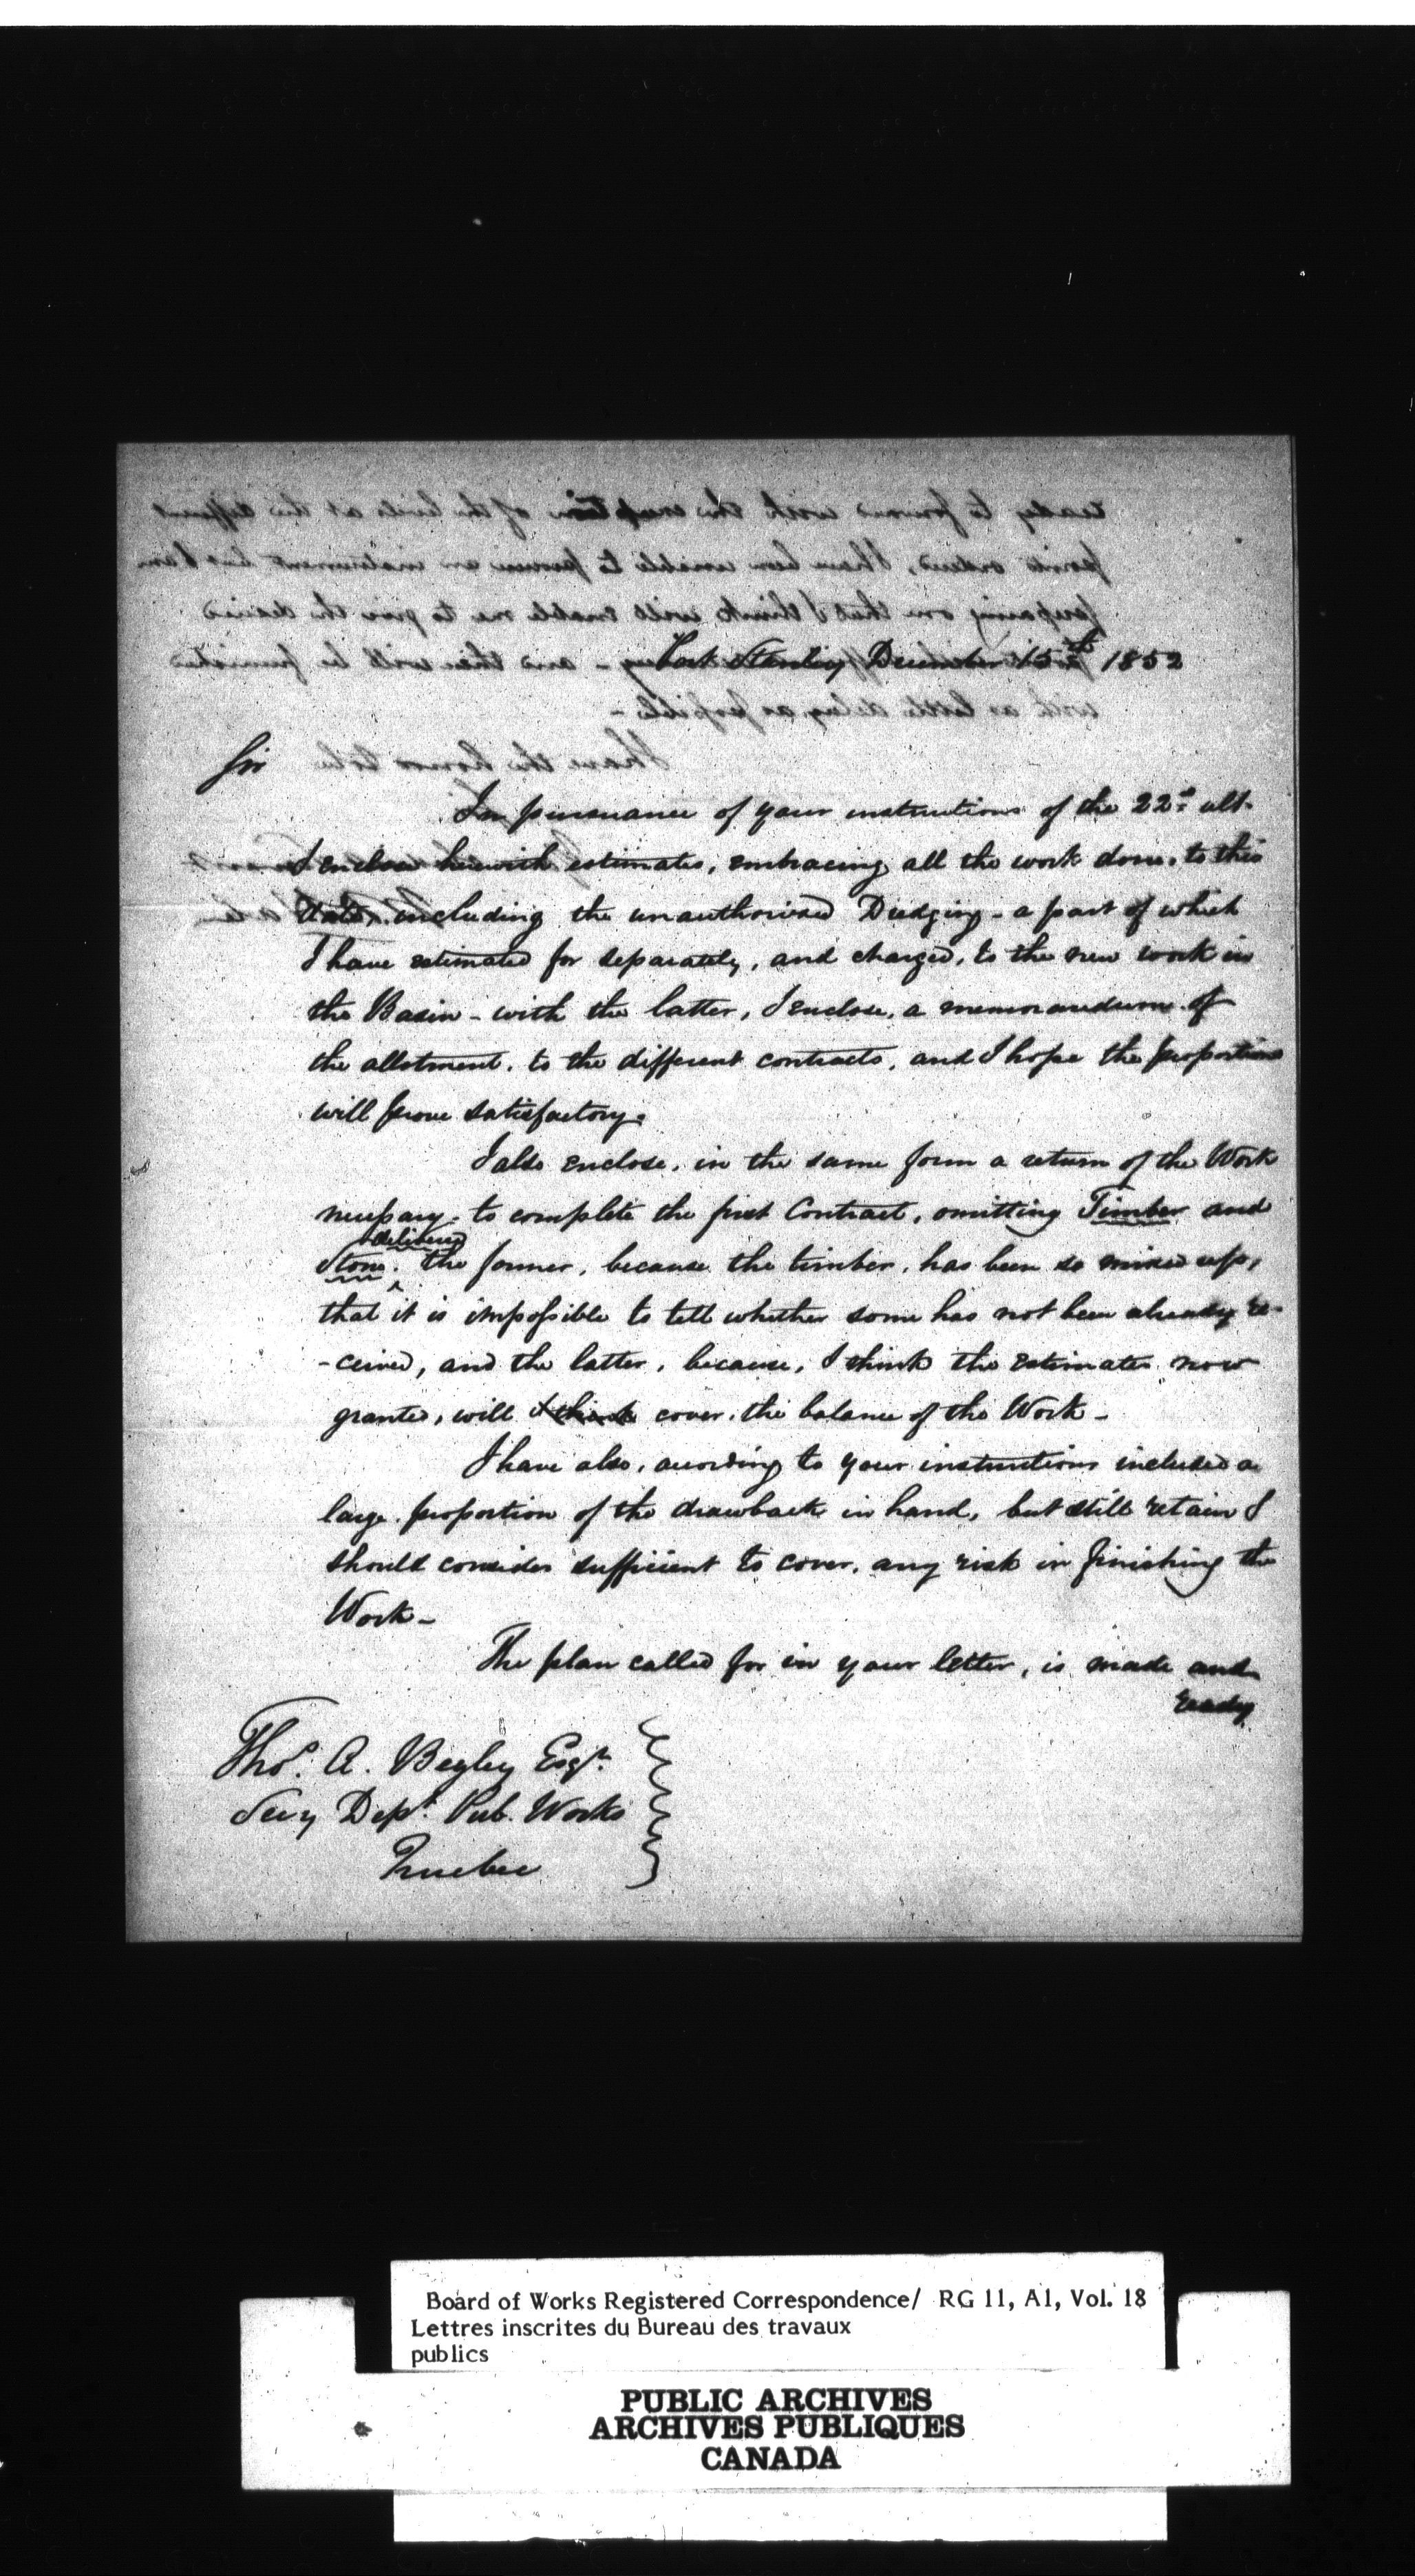 Port Stanley December 15th 1852
Sir
In pursuance of your instructions of the 22nd ult.
I enclose herewith estimates, embracing all the work done, to this
date, including the unauthorised Dredging - a part of which
I have estimated for separately, and charged, to the new work in
the Basin - with the latter, I enclose, a memorandum of
the allotment, to the different contracts, and I hope the proportions
will prove satisfactory.
I also enclose, in the same form a return of the Work
necessary to complete the first Contract, omitting Timber and
delivered
Stone. the former, because the timber, has been so mixed up,
that it is impossible to tell whether some has not been already re-
-ceived, and the latter, because, I think the estimates now
granted, will I think cover, the balance of the Work -
I have also, according to your instructions included a
large proportion of the drawback in hand, but still retain I
should consider sufficient to cover, any risk in finishing the
Work -
The plan called for in your letter, is made and
ready
Thos. A. Begley Esqr.
Secy Dept. Pub. Works
Quebec
Board of Works Registered Correspondence/ RG 11, A1, Vol. 18
Lettres inscrites du Bureau des travaux
publics
PUBLIC ARCHIVES
ARCHIVES PUBLIQUES
CANADA